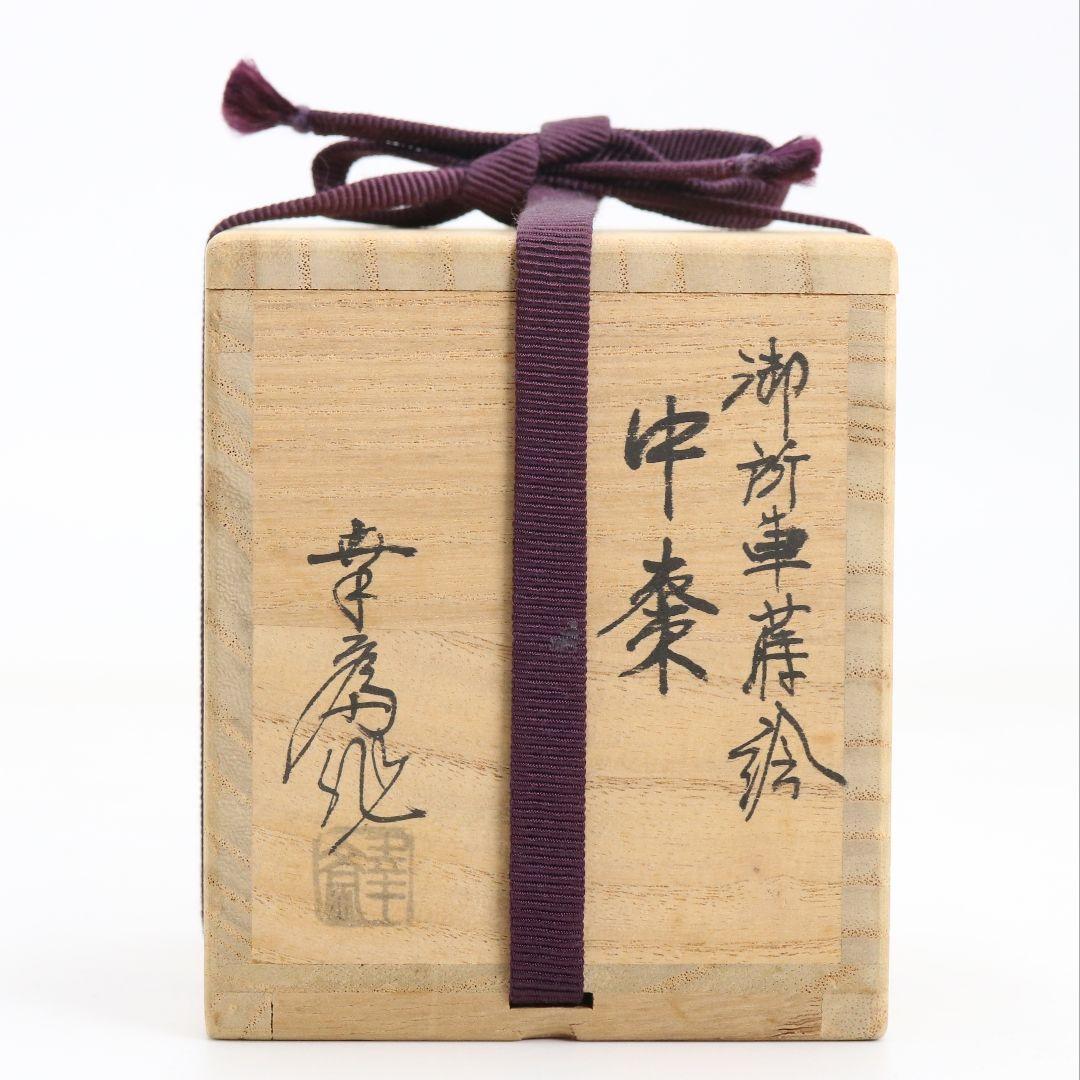 御所車蒔絵
中棗
幸斎作